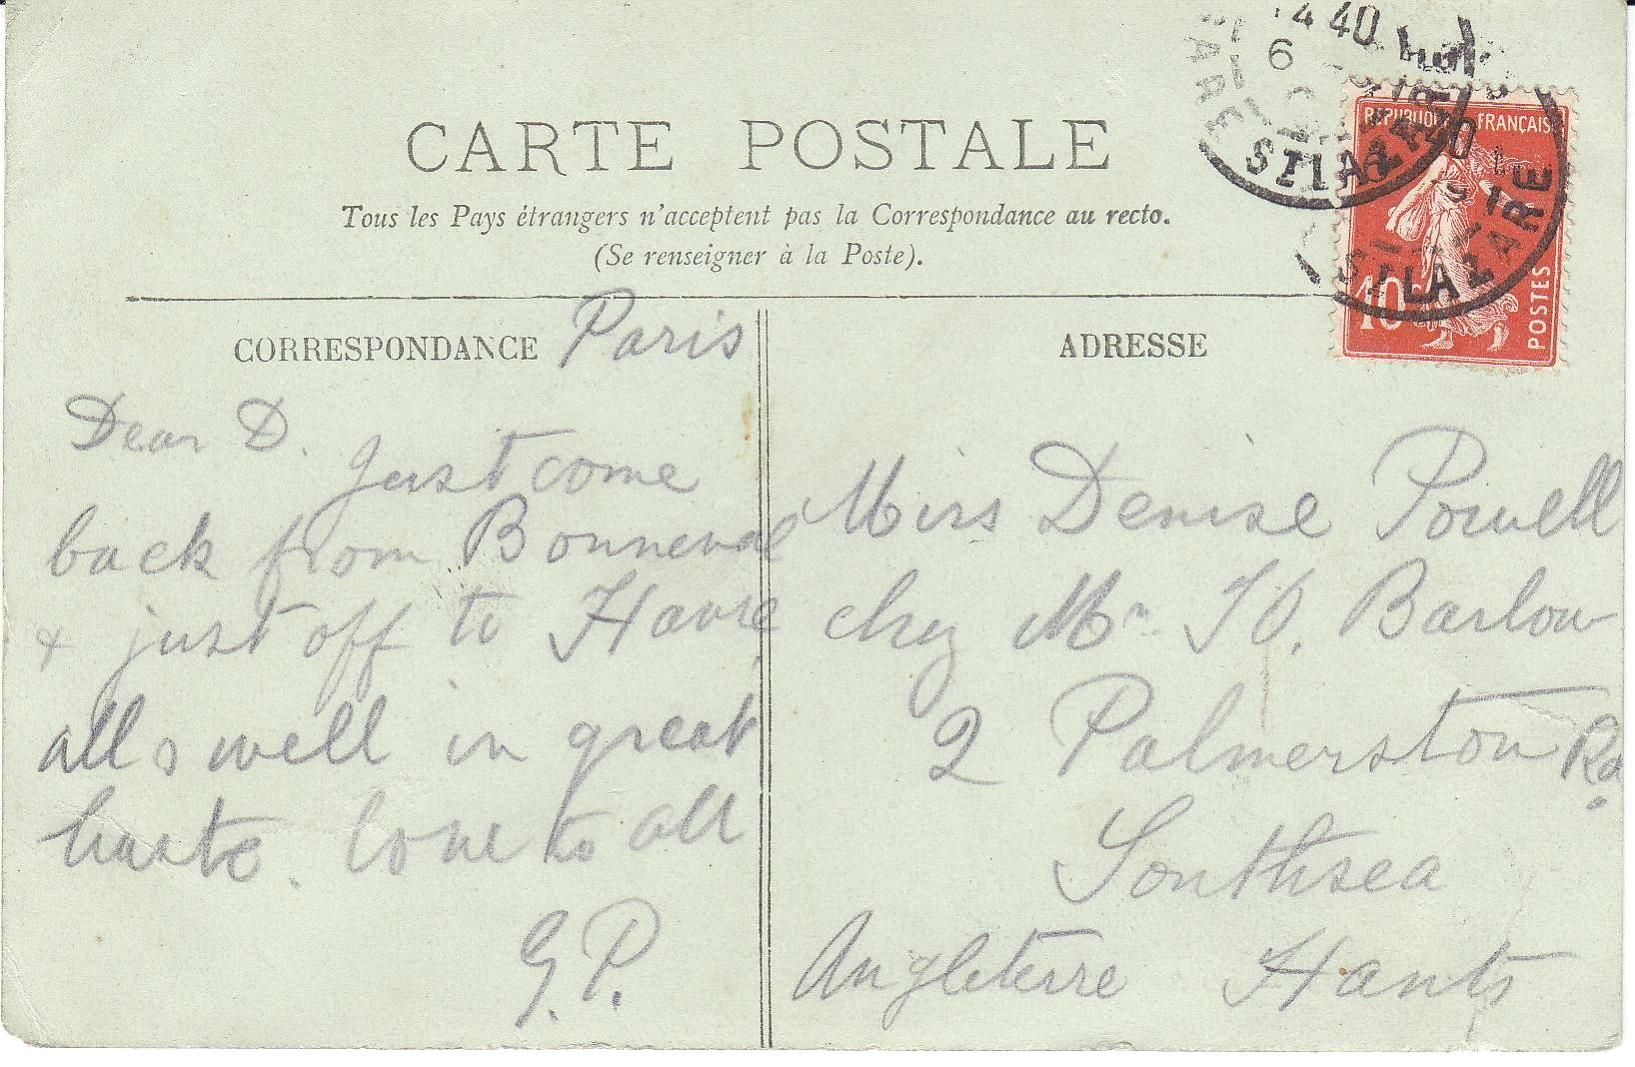 CARTE POSTALE
Tous les Pays étrangers n'acceptent pas la Correspondance au recto.
(Se renseigner à la Poste).
REPUBLIQUE FRANÇAISE
10c
POSTES
4 40
6
ST LAZARE
ST LAZARE
CORRESPONDANCE
Paris
Dear D.
Just come
back from Bonneval
& just off to Havre
all well in great
haste. love to all
G.P.
ADRESSE
Miss Denise Powell
chez Mr Barlow
2 Palmerston Rd.
Southsea
Angleterre Hants